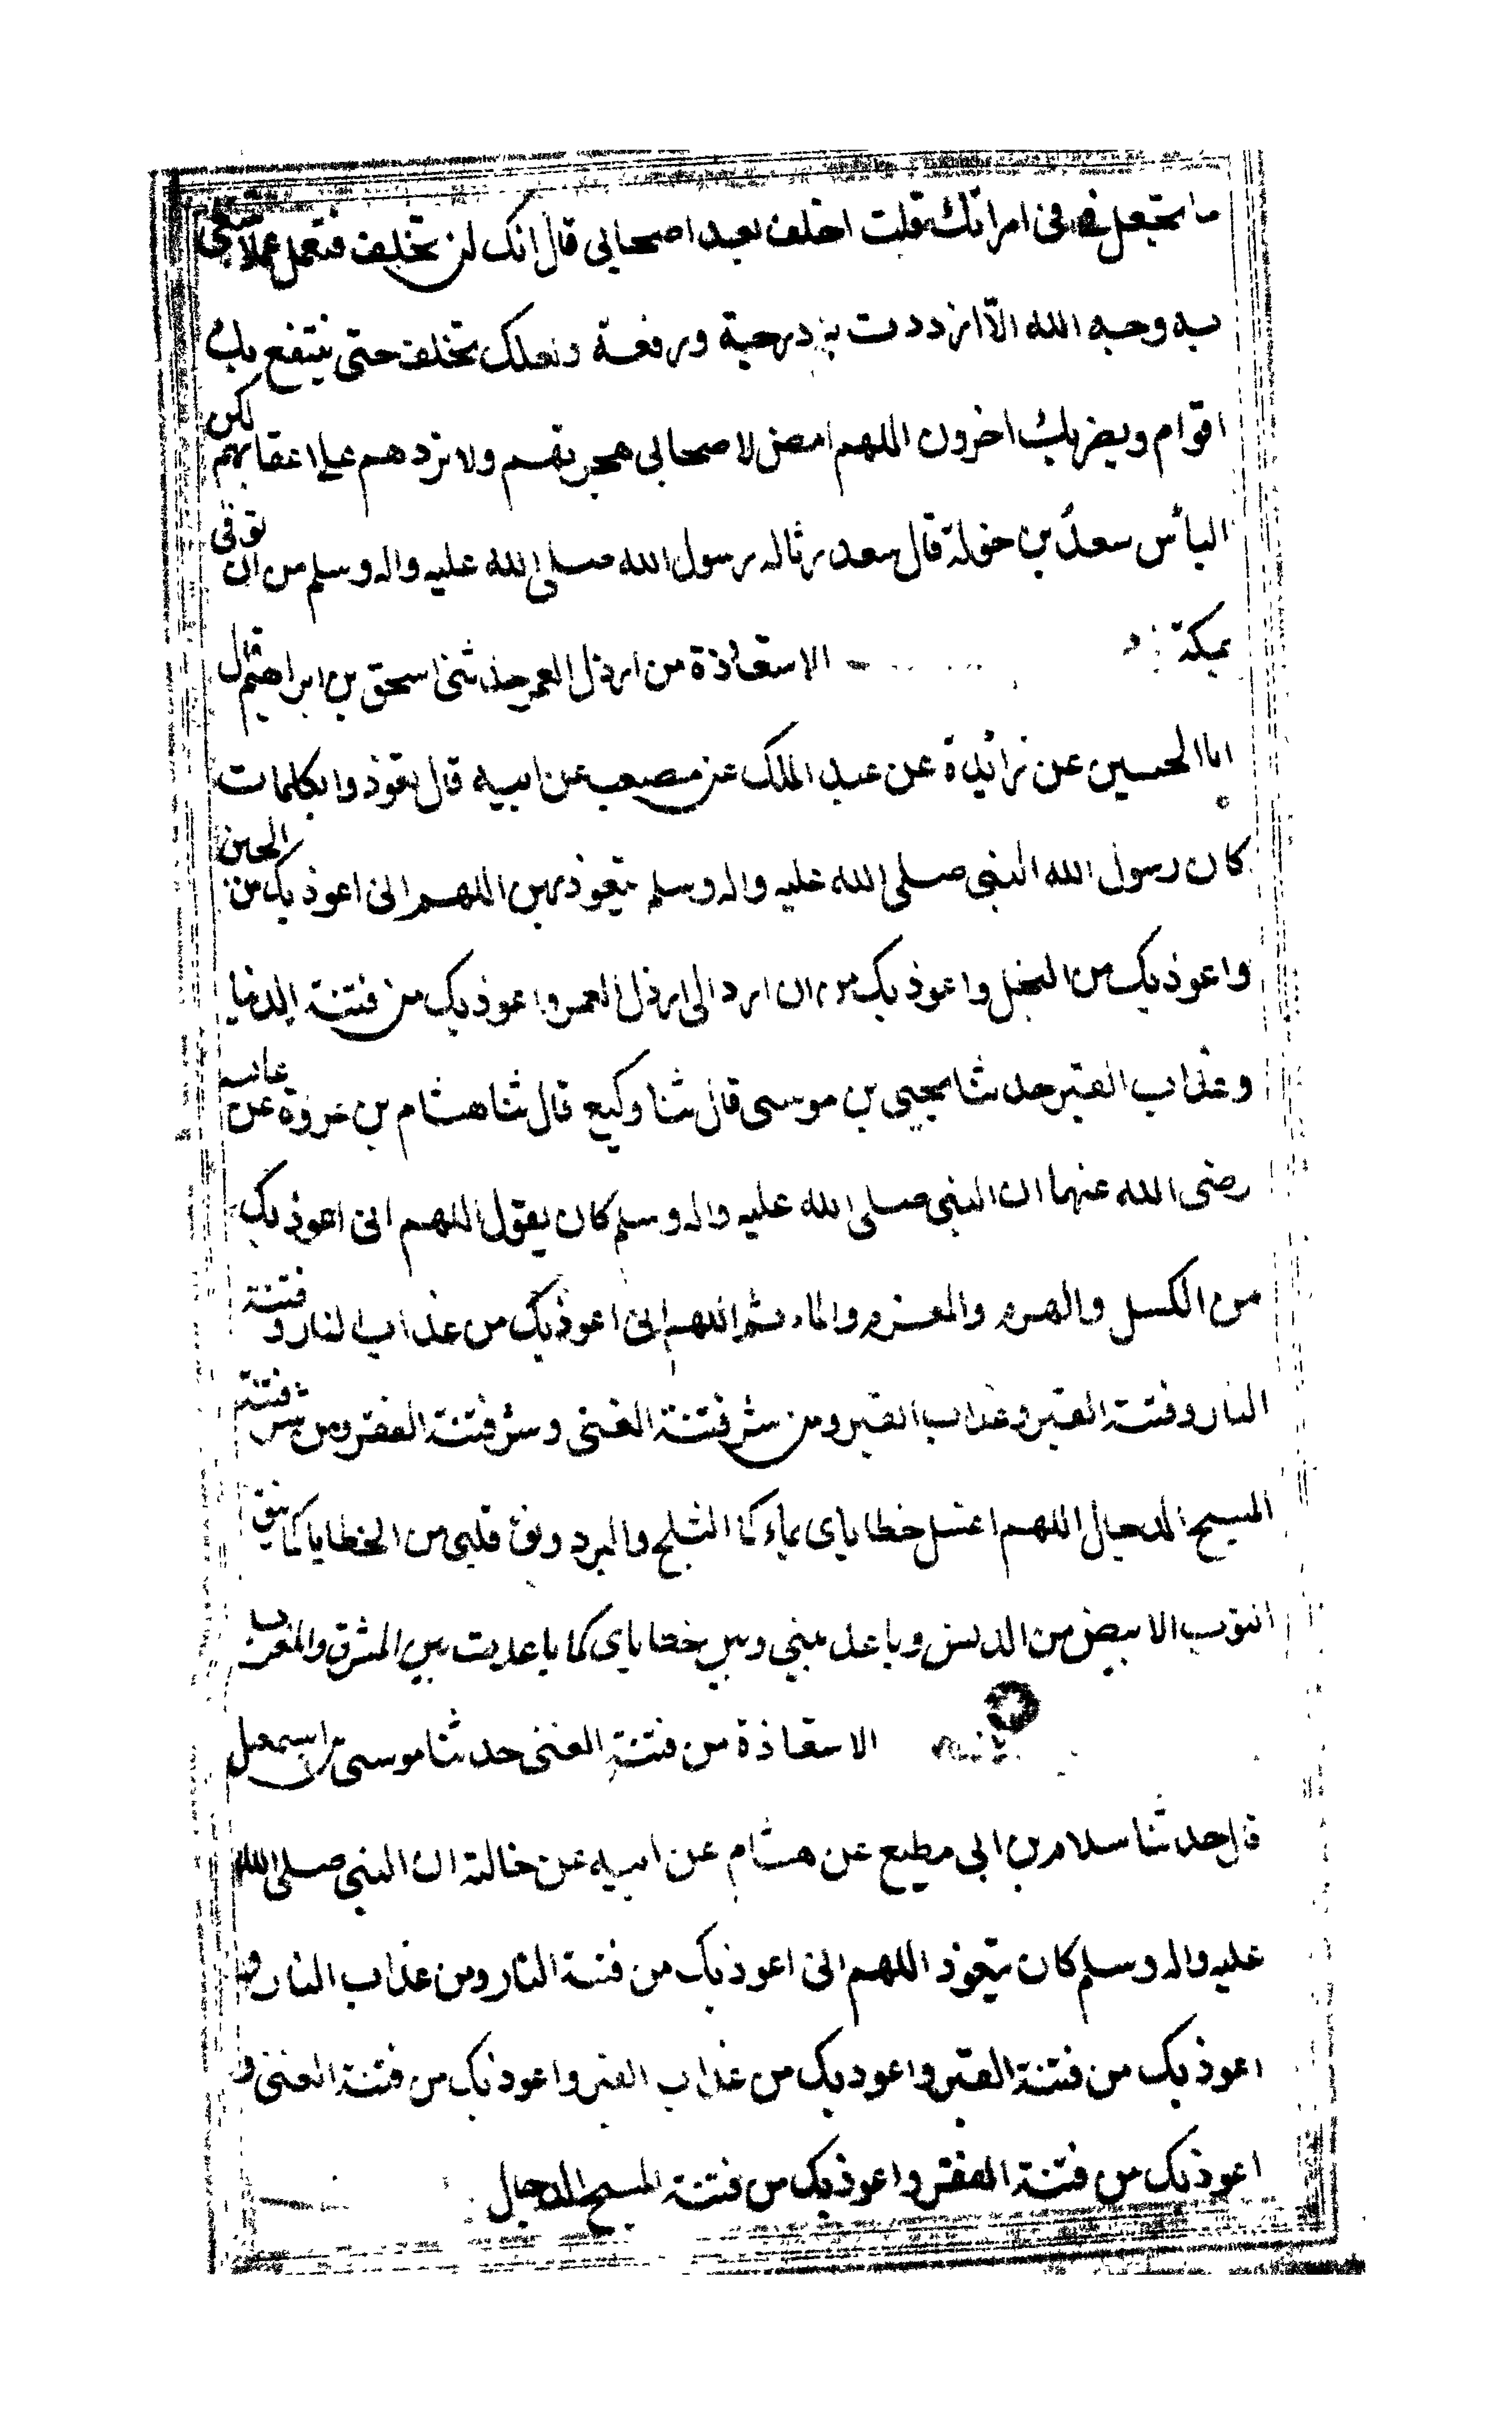 ما تجعل في في امراتك قلت اخلف بعد اصحابي قال انك لن تخلف فتعمل عملا تبتغي
به وجه الله الا ازددت به درجة ورفعة ولعلك تخلف حتى ينتفع بك
اقوام ويضر بك اخرون اللهم امض لاصحابي هجرتهم ولا تردهم على اعقابهم لكن
البأس سعد بن خولة قال سعد رثاله رسول الله صلى الله عليه واله وسلم من ان توفى
بمكة
الاستعاذة من ارذل العمر حدثنى اسحق بن ابراهيم قال
انا الحسين عن زائدة عن عبد الملك عن مصعب عن ابيه قال تعوذوا بكلمات
كان رسول الله النبي صلى الله عليه واله وسلم يتعوذ بهن اللهم انى اعوذ بك من الجبن
واعوذ بك من البخل واعوذ بك من ان ارد الى ارذل العمر واعوذ بك من فتنة الدنيا
وعذاب القبر حدثنا يحيى بن موسى قال ثنا وكيع قال ثنا هشام بن عروة عن عايشه
رضى الله عنهما ان النبي صلى الله عليه واله وسلم كان يقول اللهم انى اعوذ بك
من الكسل والهرم والمغرم والماثم اللهم انى اعوذ بك من عذاب النار و فتنة
النار وفتنة القبر وعذاب القبر ومن شر فتنة الغنى وشر فتنة الفقر ومن شر فتنة
المسيح الدجال اللهم اغسل خطاياى بماء كا الثلج والبرد ونق قلبي من الخطايا كما ينقى
الثوب الابيض من الدنس وباعد بيني وبين خطاياى كما باعدت بين المشرق والمغرب
الاستعاذة من فتنة الغنى حدثنا موسى بن اسمعيل
قال حدثنا سلام بن ابى مطيع عن هشام عن ابيه عن خالته ان النبي صلى الله
عليه واله وسلم كان يتعوذ اللهم انى اعوذ بك من فتنة النار ومن عذاب النار و
اعوذ بك من فتنة القبر واعوذ بك من عذاب القبر واعوذ بك من فتنة الغنى و
اعوذ بك من فتنة الفقر واعوذ بك من فتنة المسيح الدجال